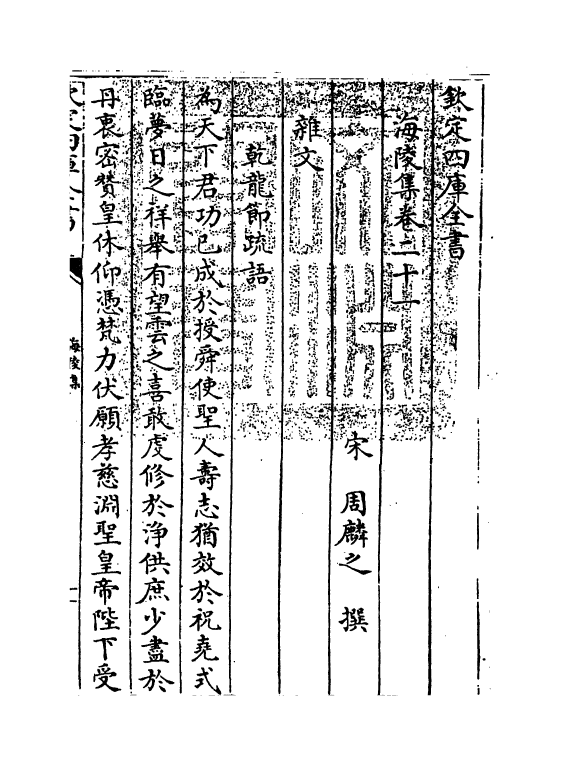 欽定四庫全書
海陵集卷二十一
宋 周麟之 撰
雜文
乾龍節疏語
為天下君功已成於授舜使聖人壽志猶效於祝堯式
臨夢日之祥舉有望雲之喜敢䖍修於淨供庶少盡於
丹衷密贊皇休仰憑梵力伏願孝慈淵聖皇帝陛下受
海陵集